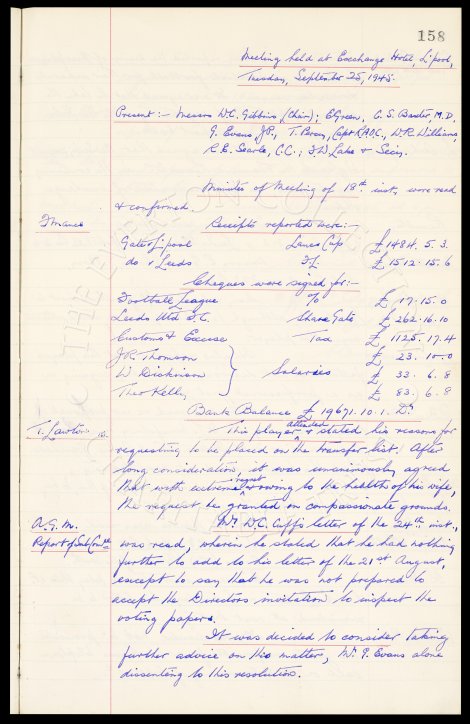 158
Meeting held at Exchange Hotel, L'pool,
Tuesday, September 25, 1945.
Present :- Messrs W.C. Gibbins (Chair); E. Green, C.S. Baxter, M.D.,
J. Evans J.P., T. Percy, Capt R.A.O.C., W.R. Williams,
R.E. Searle, C.C.; F.W. Lake & Secy.
Minutes of Meeting of 18th inst, were read
& confirmed.
Finance Receipts reported were:-
Gate v L'pool Lancs Cup £1484. 5. 3.
do v Leeds F.L. £1512. 15. 6
Cheques were signed for:-
Football League % £ 17. 15. 0
Leeds Utd F.C. Share Gate £262. 16. 10
Customs & Excise Tax £1125. 17. 4
J.R. Thomson £ 23. 10. 0
W Dickinson Salaries £ 33. 6. 8
Theo Kelly £ 83. 6. 8
Bank Balance £19671. 10. 1. Dr
T. Lawton This player attended & stated his reasons for
requesting to be placed on the transfer list. After
long consideration, it was unanimously agreed
that with extreme regret & owing to the health of his wife,
the request be granted on compassionate grounds.
A.G.M. Mr W.C. Cuff's letter of the 24th inst,
Report of Sub Com'tee was read, wherein he stated that he had nothing
further to add to his letter of the 21st August,
except to say that he was not prepared to
accept the Directors invitation to inspect the
voting papers.
It was decided to consider taking
further advice on this matter, Mr J. Evans alone
dissenting to this resolution.